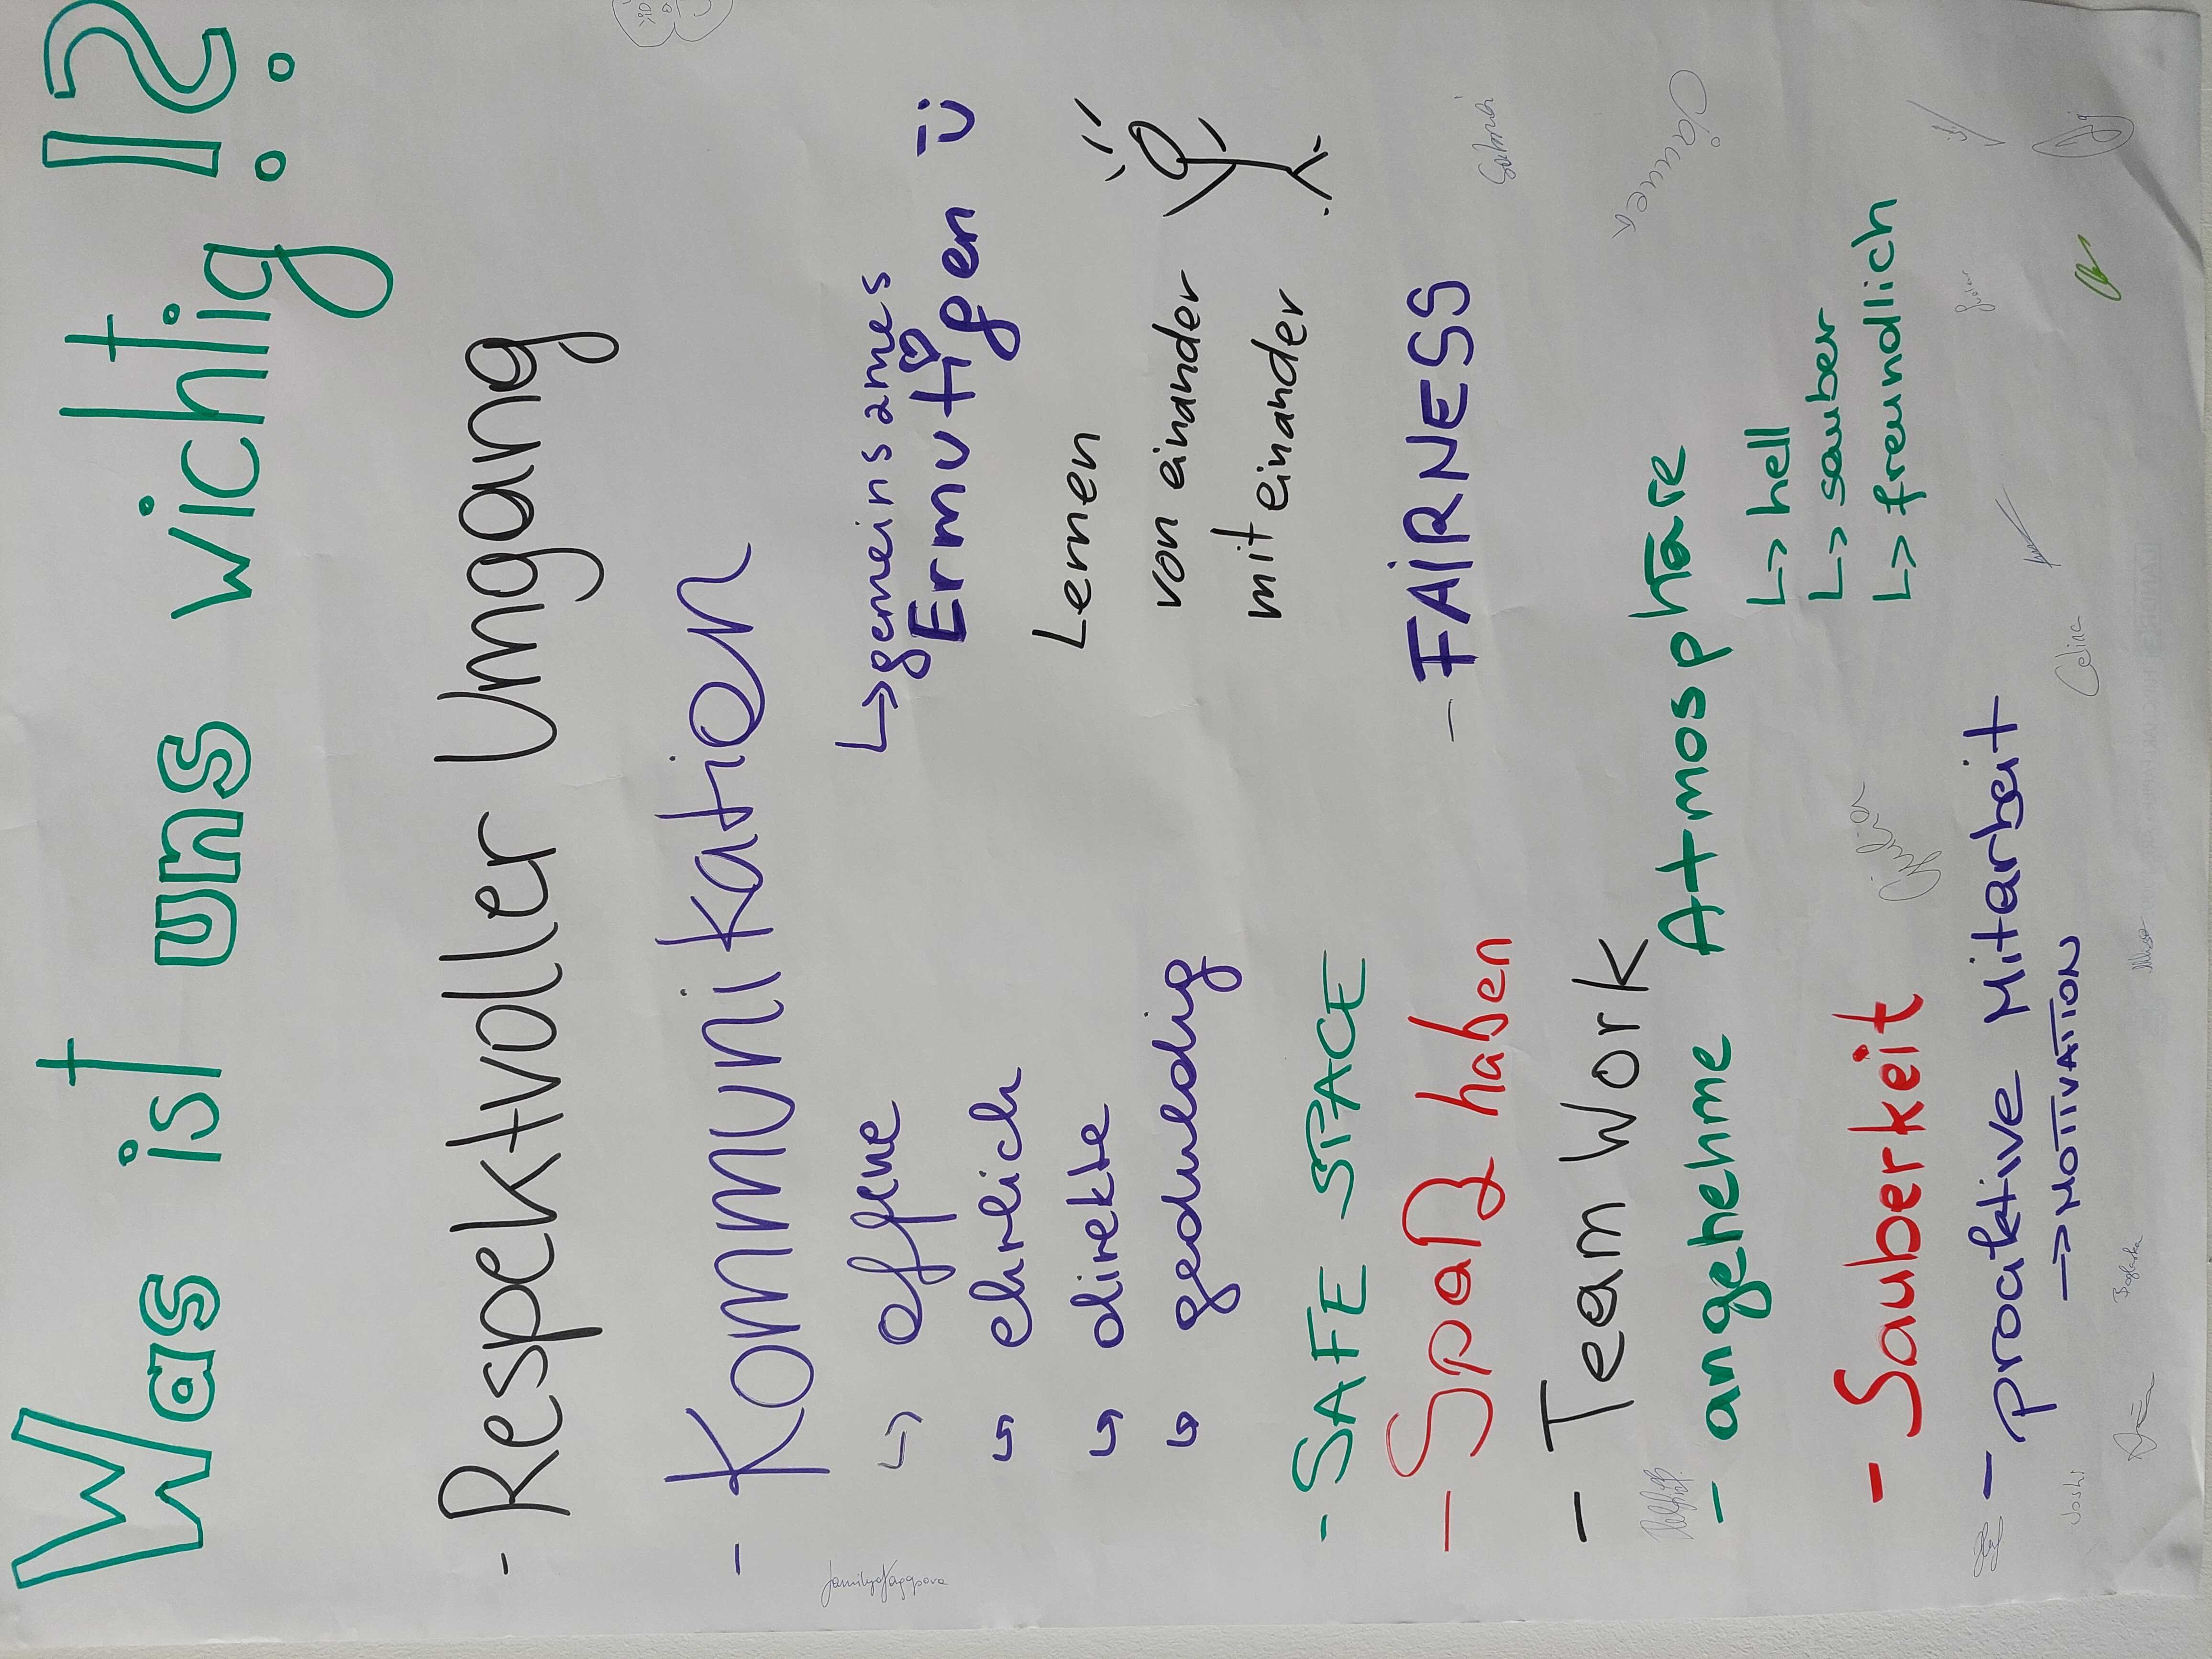 Was ist uns wichtig!?
- Respektvoller Umgang
- Kommunikation
↳ offene
↳ ehrlich
↳ direkte
↳ geduldig
↳ gemeinsames
Ermutigen
Lernen
von einander
mit einander
- SAFE SPACE
- Spaß haben
- FAiRNESS
- Team Work
- angenehme Atmosphäre
↳ hell
↳ sauber
↳ freundlich
- Sauberkeit
Giulia
- proaktive Mitarbeit
→ MOTIVATION
Joshi
Celina
Boglarka